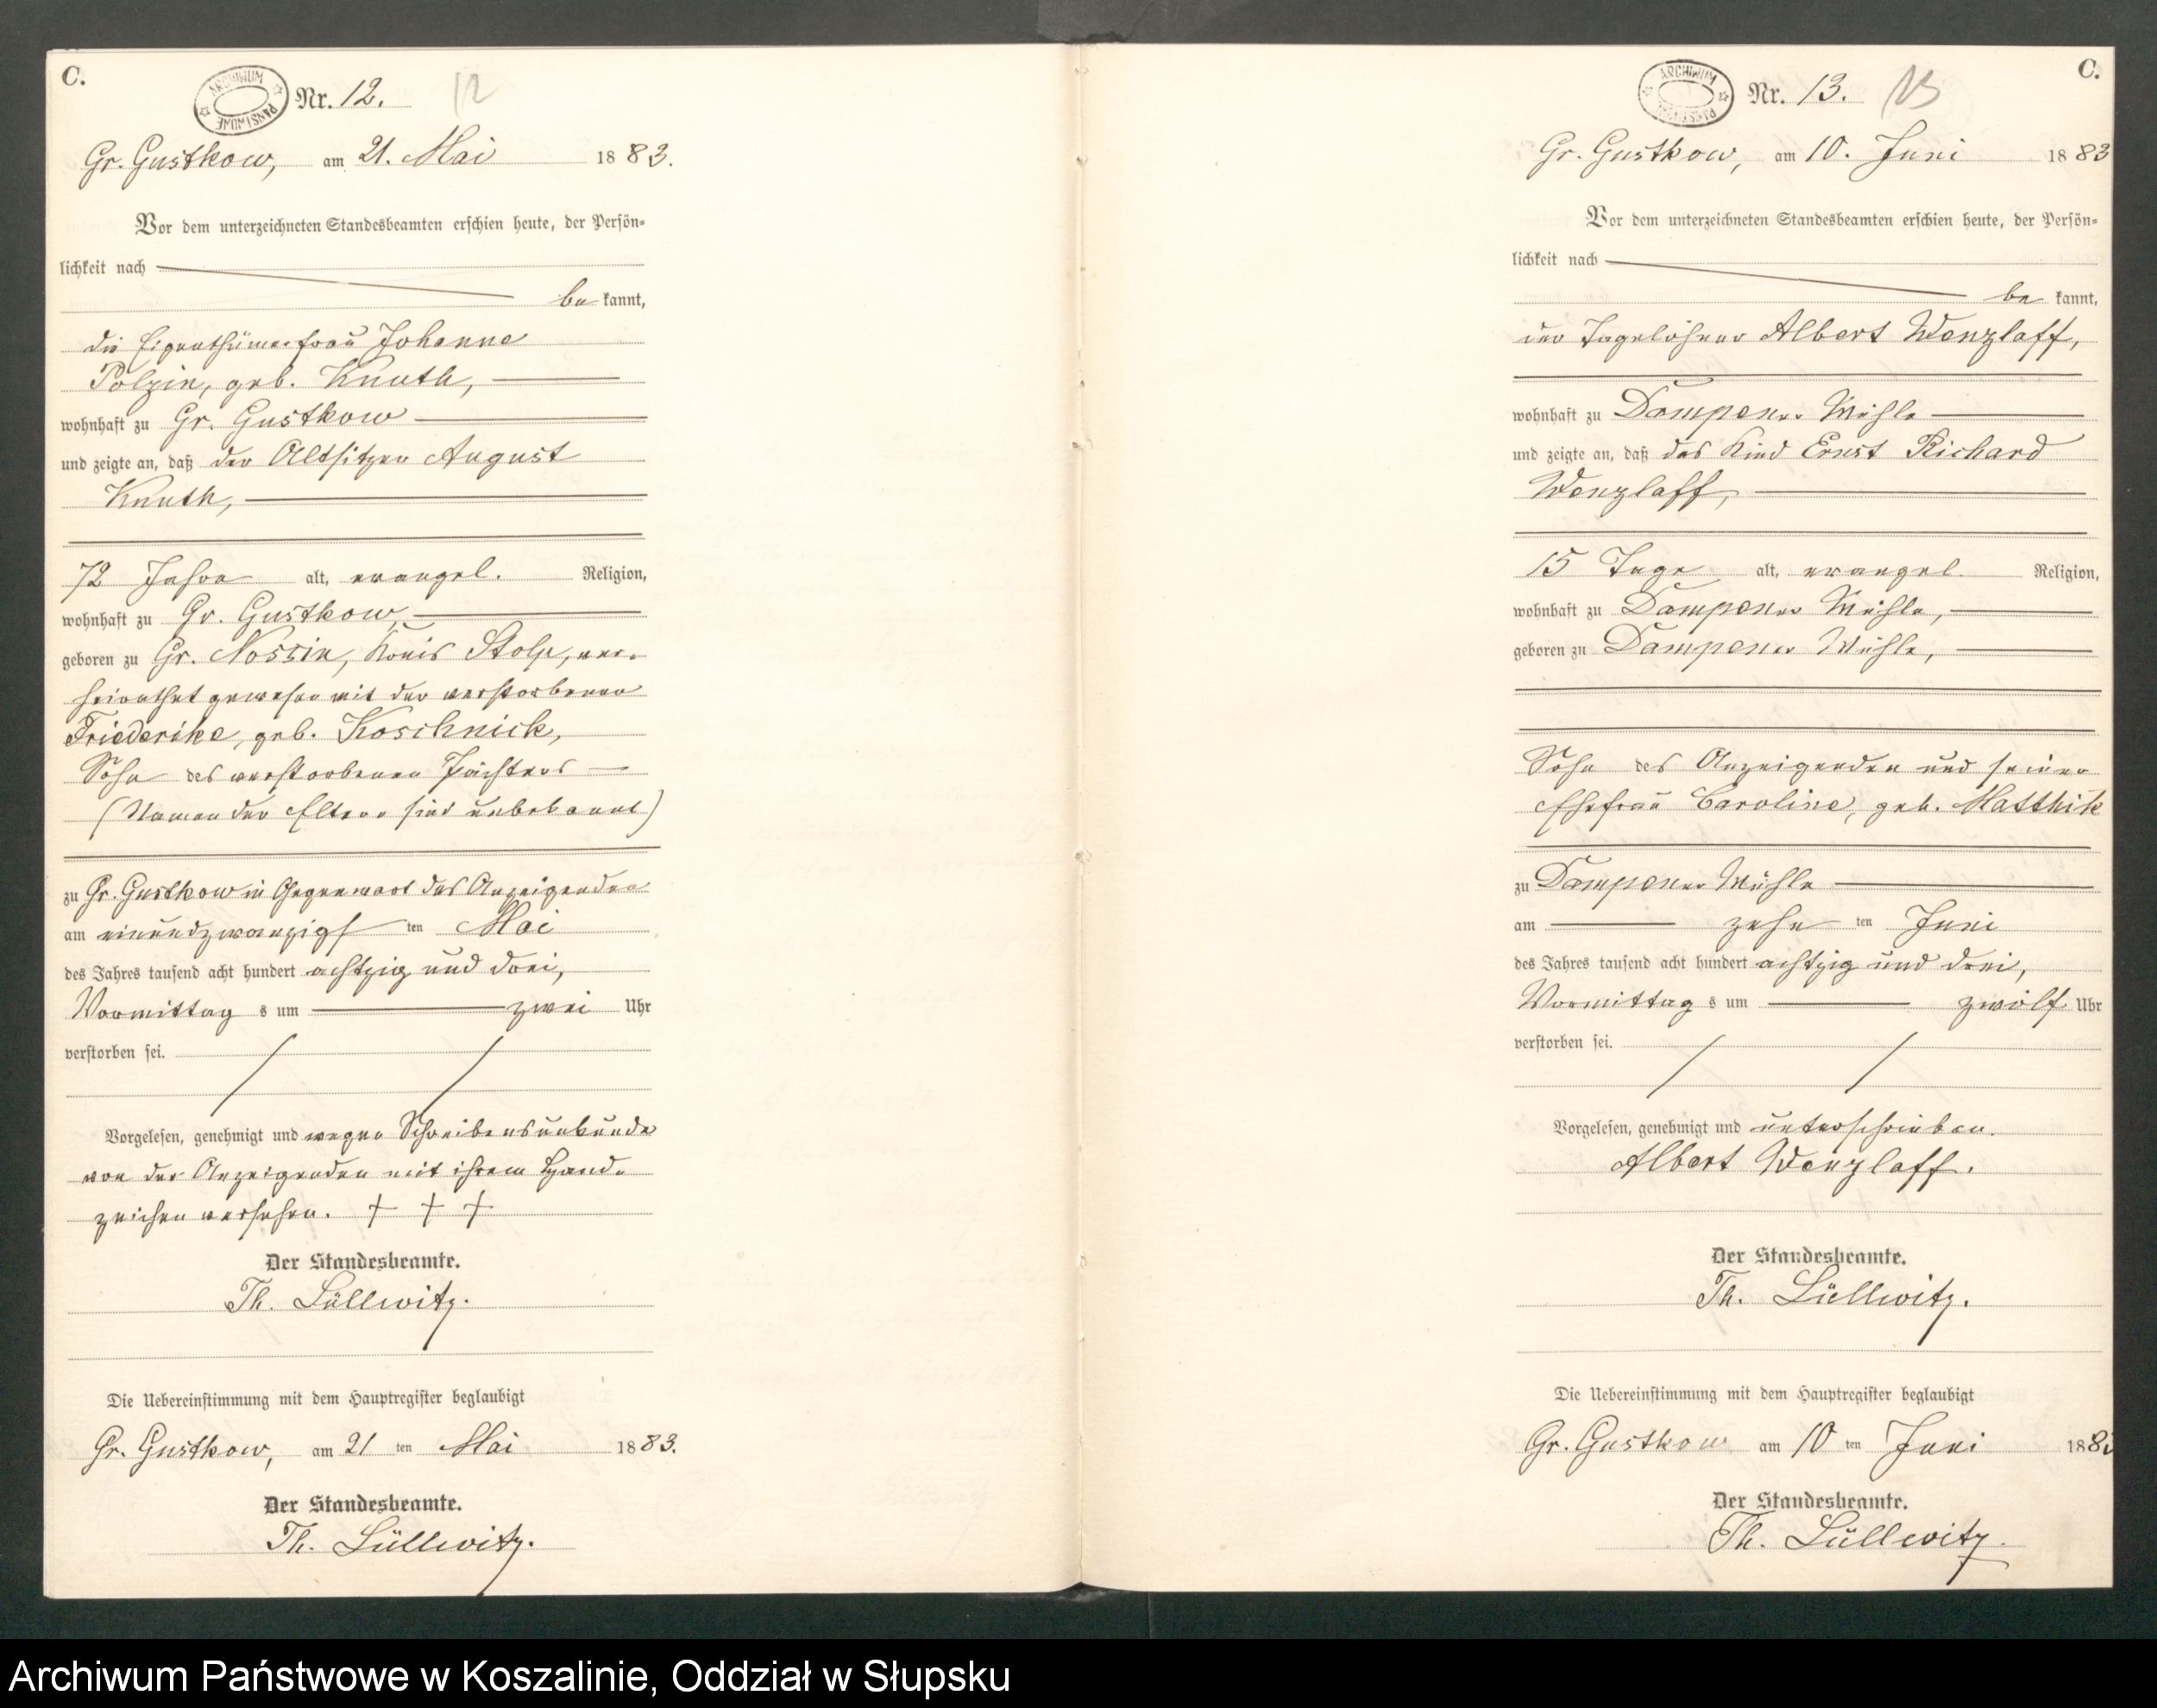 C.
ARCHIWUM PAŃSTWOWE
Nr. 12. 12
Gr. Gustkow, am 21. Mai 1883.
Vor dem unterzeichneten Standesbeamten erschien heute, der Persön-
lichkeit nach
be kannt,
die Eigenthümerfrau Johanne
Polzin, geb. Knuth,
wohnhaft zu Gr. Gustkow
und zeigte an, daß der Altsitzer August
Knuth,
72 Jahre alt, evangel. Religion,
wohnhaft zu Gr. Gustkow,
geboren zu Gr. Nossin, Kreis Stolp, ver-
heirathet gewesen mit der verstorbenen
Friederike, geb. Koschnick,
Sohn des verstorbenen Pächters
(Namen der Eltern sind unbekannt)
zu Gr. Gustkow in Gegenwart des Anzeigenden
am einundzwanzigsten Mai
des Jahres tausend acht hundert achtzig und drei,
Vormittags um zwei Uhr
verstorben sei.
Vorgelesen, genehmigt und wegen Schreibensunkunde
von der Anzeigenden mit ihrem Hand-
zeichen versehen. + + +
Der Standesbeamte.
Th. Lüllwitz.
Die Uebereinstimmung mit dem Hauptregister beglaubigt
Gr. Gustkow, am 21 ten Mai 1883.
Der Standesbeamte.
Th. Lüllwitz.
C.
ARCHIWUM PAŃSTWOWE
Nr. 13. 13
Gr. Gustkow, am 10. Juni 1883
Vor dem unterzeichneten Standesbeamten erschien heute, der Persön-
lichkeit nach
be kannt,
der Tagelöhner Albert Wenzlaff,
wohnhaft zu Dampener Mühle
und zeigte an, daß das Kind Ernst Richard
Wenzlaff,
15 Tage alt, evangel. Religion,
wohnhaft zu Dampener Mühle,
geboren zu Dampener Mühle,
Sohn des Anzeigenden und seiner
Ehefrau Caroline, geb. Matthik
zu Dampener Mühle
am zehn ten Juni
des Jahres tausend acht hundert achtzig und drei,
Vormittags um zwölf Uhr
verstorben sei.
Vorgelesen, genehmigt und unterschrieben.
Albert Wenzlaff.
Der Standesbeamte.
Th. Lüllwitz.
Die Uebereinstimmung mit dem Hauptregister beglaubigt
Gr. Gustkow am 10 ten Juni 1883
Der Standesbeamte.
Th. Lüllwitz.
Archiwum Państwowe w Koszalinie, Oddział w Słupsku